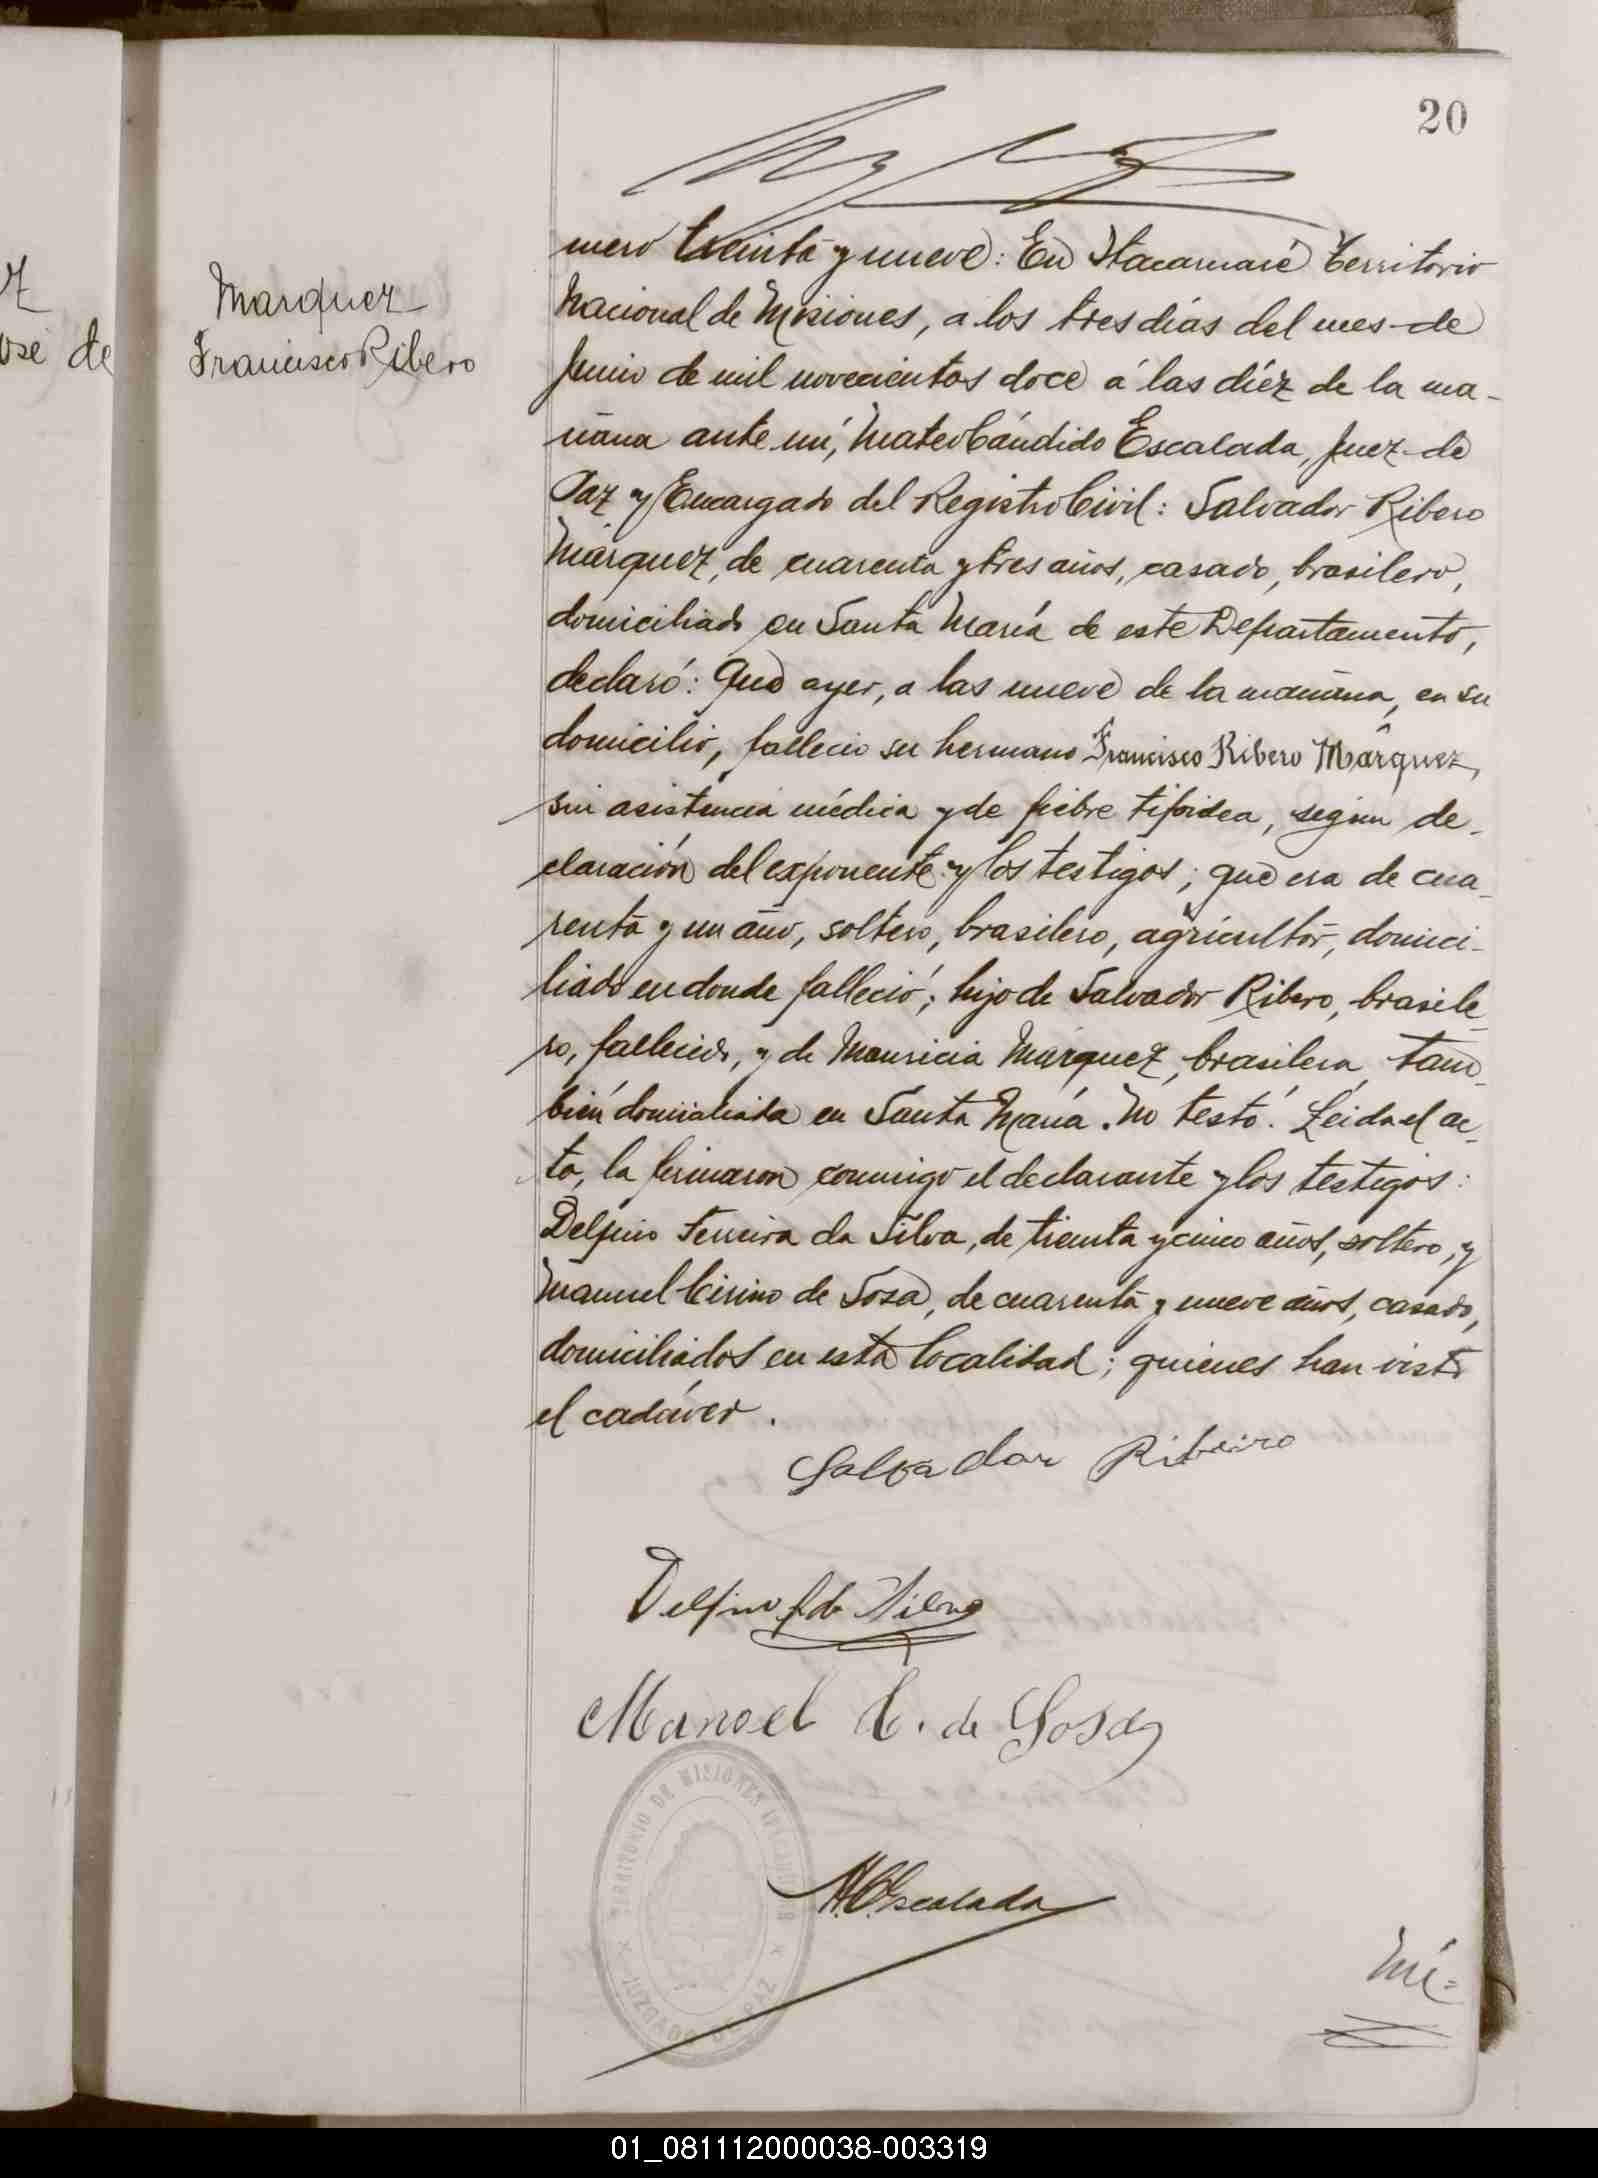 20
z
osé de
Marquez
Francisco Ribero
mero treinta y nueve: En Itacaruaré Territorio
Nacional de Misiones, a los tres dias del mes de
Junio de mil novecientos doce á las diéz de la ma-
ñana ante mí, Mateo Cándido Escalada, Juez de
Paz y Encargado del Registro Civil: Salvador Ribero
Márquez, de cuarenta y tres años, casado, brasilero,
domiciliado en Santa María de este Departamento,
declaró: Que ayer, a las nueve de la mañana, en su
domicilio, fallecio su hermano Francisco Ribero Márquez,
sin asistencia médica y de fiebre tifoidea, segun de-
claración del exponente y los testigos; que era de cua-
renta y un año, soltero, brasilero, agricultor, domici-
liado en donde falleció; hijo de Salvador Ribero, brasile-
ro, fallecido, y de Mauricia Márquez, brasilera, tam-
bién domiciliada en Santa María. No testó. Leida el ac-
ta, la firmaron conmigo el declarante y los testigos:
Delfino Ferreira da Silva, de treinta y cinco años, soltero, y
Manuel Cirino de Sosa, de cuarenta y nueve años, casado,
domiciliados en esta localidad; quienes han visto
el cadáver.
Salvador Ribeiro
Delfino f. da Silva
Manoel C. de Sosa
TERRITORIO DE MISIONES
JUZGADO DE PAZ
M.C. Escalada
Nú-
01_081112000038-003319